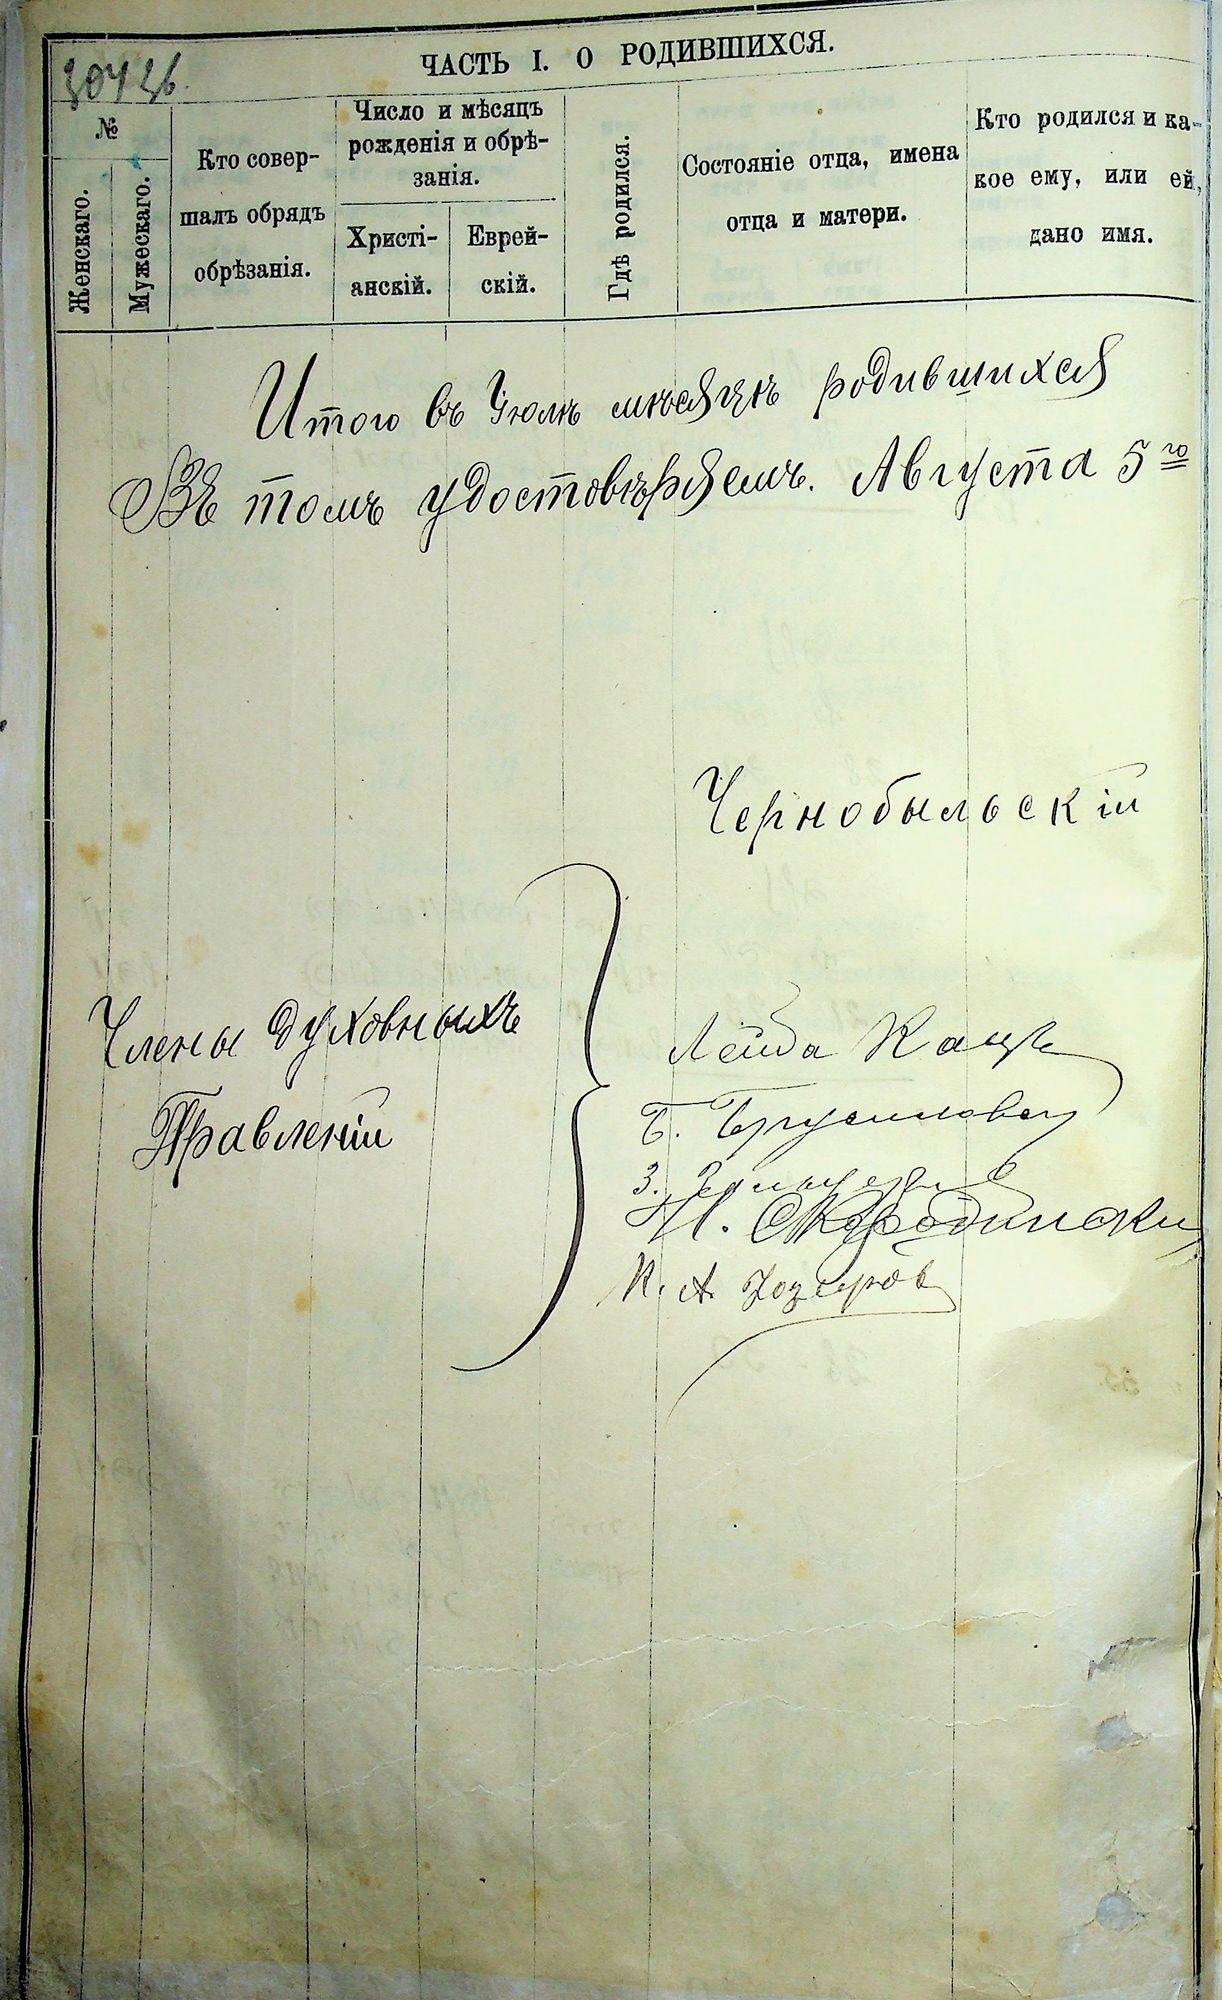 ЧАСТЬ I. О РОДИВШИХСЯ.
№
Женскаго.
Мужескаго.
Кто совер-
шалъ обрядъ
обрѣзанія.
Число и мѣсяцъ
рожденія и обрѣ-
занія.
Христі-
анскій.
Еврей-
скій.
Гдѣ родился.
Состояніе отца, имена
отца и матери.
Кто родился и ка-
кое ему, или ей,
дано имя.
Итого въ Іюлѣ мѣсяцѣ родившихся
Въ томъ удостовѣряемъ. Августа 5го
Чернобыльскій
Члены духовныхъ
Правленій
Лейба Кацъ
Б.
З.
Н. Скородински
К. А.